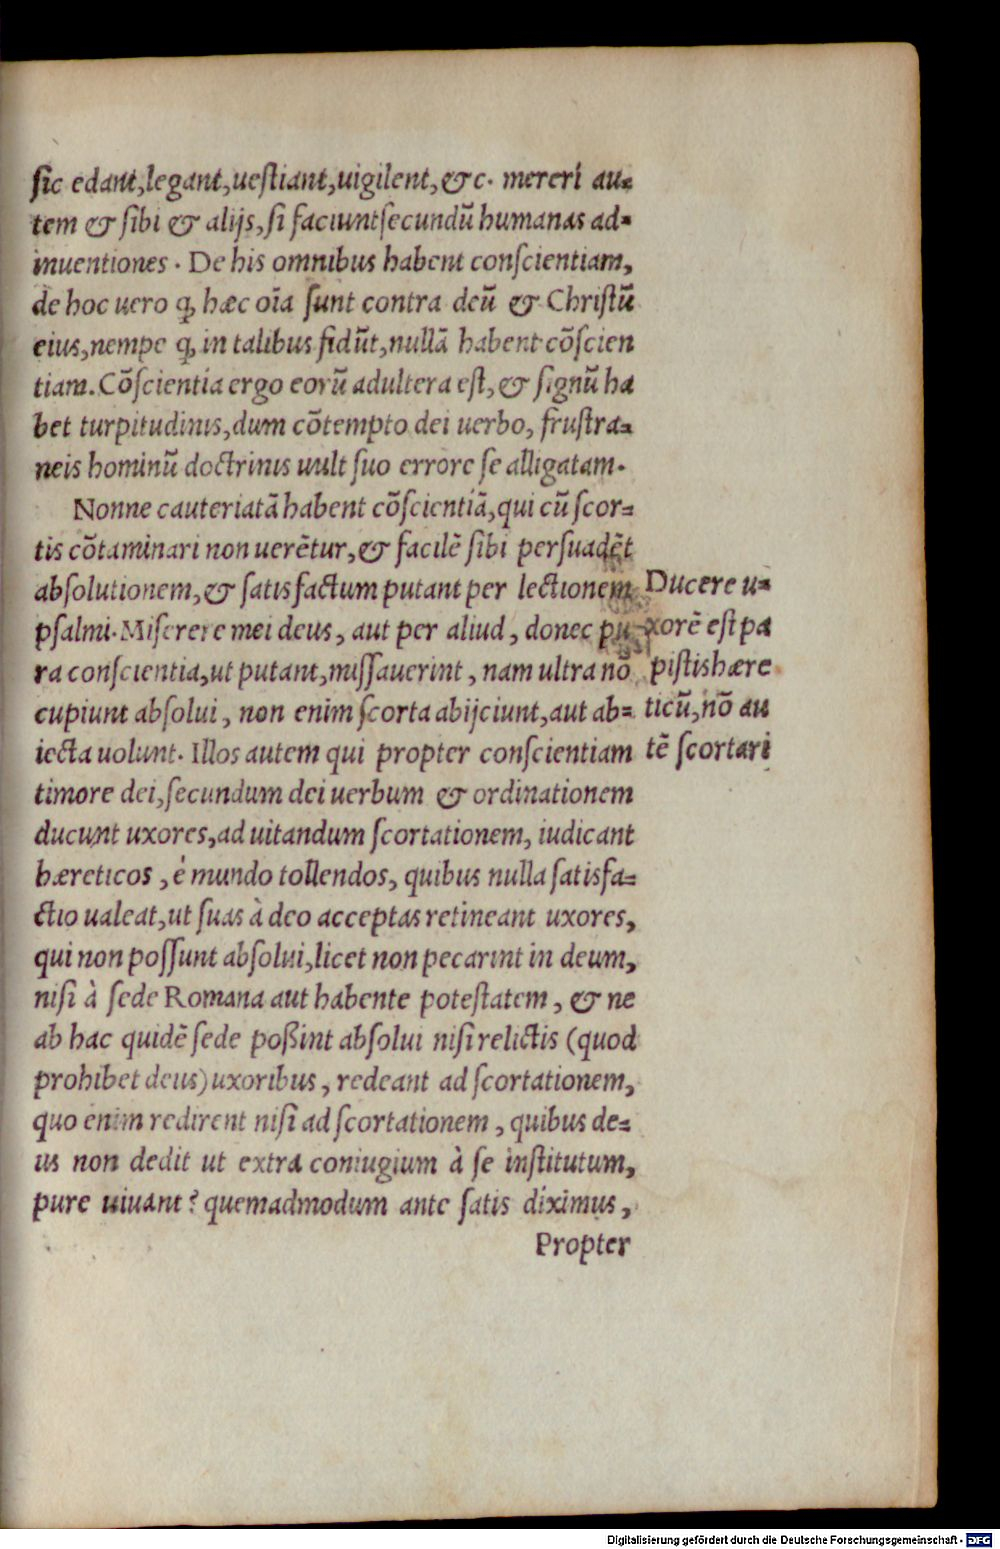 ſic edant,legant,ueſtiant,uigilent,&c. mereri au=
tem & ſibi & alijs,ſi faciunt ſecundũ humanas ad=
inuentiones. De his omnibus habent conſcientiam,
de hoc uero ꝙ hæc oĩa ſunt contra deũ & Chriſtũ
eius,nempe ꝙ in talibus fidũt,nullã habent cõſcien
tiam. Cõſcientia ergo eorũ adultera eſt,& ſignũ ha
bet turpitudinis,dum cõtempto dei uerbo, fruſtra=
neis hominũ doctrinis uult ſuo errore ſe alligatam.
Nonne cauteriatã habent cõſcientiã,qui cũ ſcor=
tis cõtaminari non uerẽtur,& facilẽ ſibi perſuadẽt
abſolutionem,& ſatis factum putant per lectionem
pſalmi. Miſerere mei deus, aut per aliud, donec pu
ra conſcientia,ut putant,miſſauerint, nam ultra nõ
cupiunt abſolui, non enim ſcorta abijciunt,aut ab=
iecta uolunt. Illos autem qui propter conſcientiam
timore dei,ſecundum dei uerbum & ordinationem
ducunt uxores,ad uitandum ſcortationem, iudicant
hæreticos, è mundo tollendos, quibus nulla ſatisfa=
ctio ualeat,ut ſuas à deo acceptas retineant uxores,
qui non poſſunt abſolui,licet non pecarint in deum,
niſi à ſede Romana aut habente poteſtatem, & ne
ab hac quidẽ ſede poßint abſolui niſi relictis (quod
prohibet deus) uxoribus, redeant ad ſcortationem,
quo enim redirent niſi ad ſcortationem, quibus de=
us non dedit ut extra coniugium à ſe inſtitutum,
pure uiuant? quemadmodum ante ſatis diximus,
Propter
Ducere u=
xorẽ eſt pa
piſtis hære
ticũ, nõ au
tẽ ſcortari
Digitalisierung gefördert durch die Deutsche Forschungsgemeinschaft · DFG